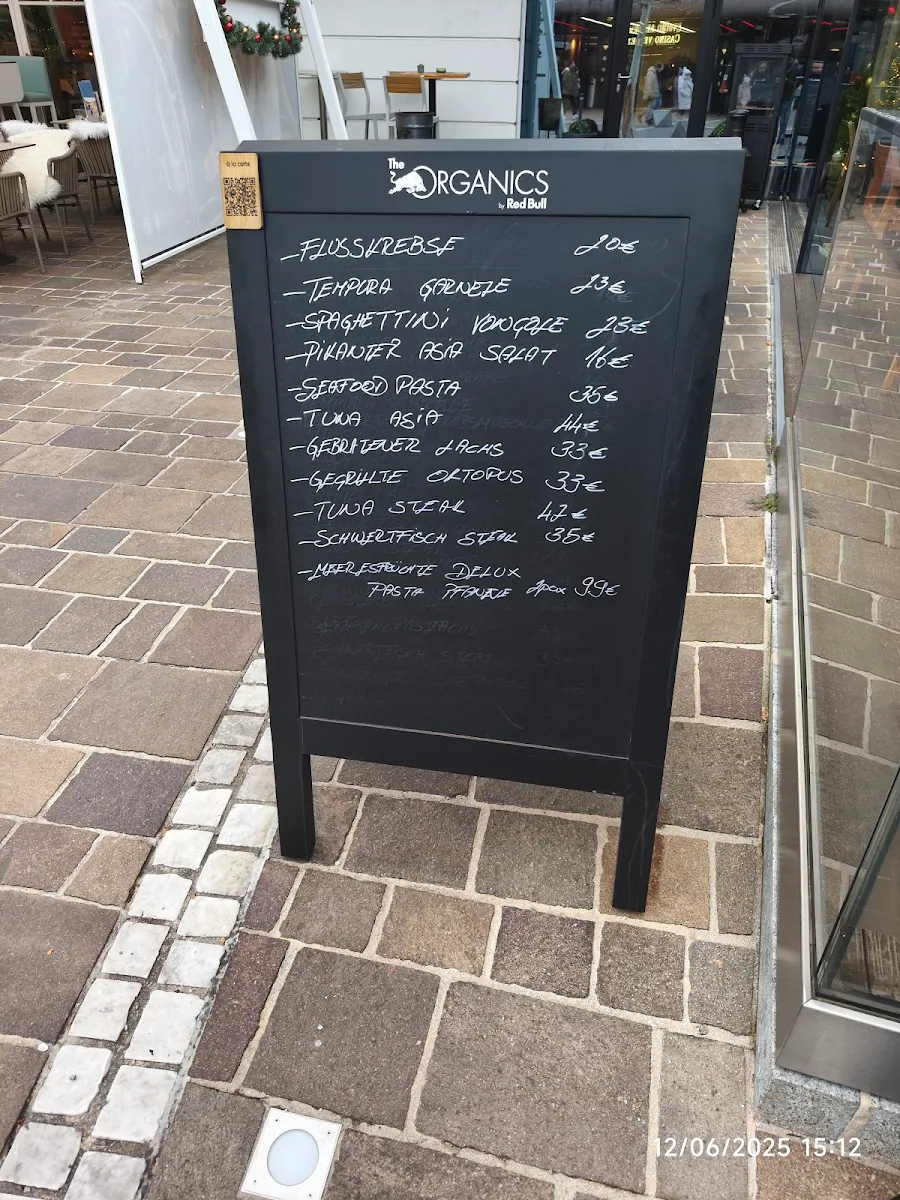 EVENTS
CASINO VE
à la carte
The
ORGANICS
by Red Bull
- FLUSSKREBSE 20€
- TEMPURA GARNELE 23€
- SPAGHETTINI VONGOLE 23€
- PIKANTER ASIA SALAT 16€
- SEAFOOD PASTA 35€
- TUNA ASIA 44€
- GEBRATENER LACHS 33€
- GEGRILLTE OKTOPUS 33€
- TUNA STEAK 42€
- SCHWERTFISCH STEAK 35€
- MEERESFRÜCHTE DELUX
PASTA PFANDLE 2pax 99€
12/06/2025 15:12